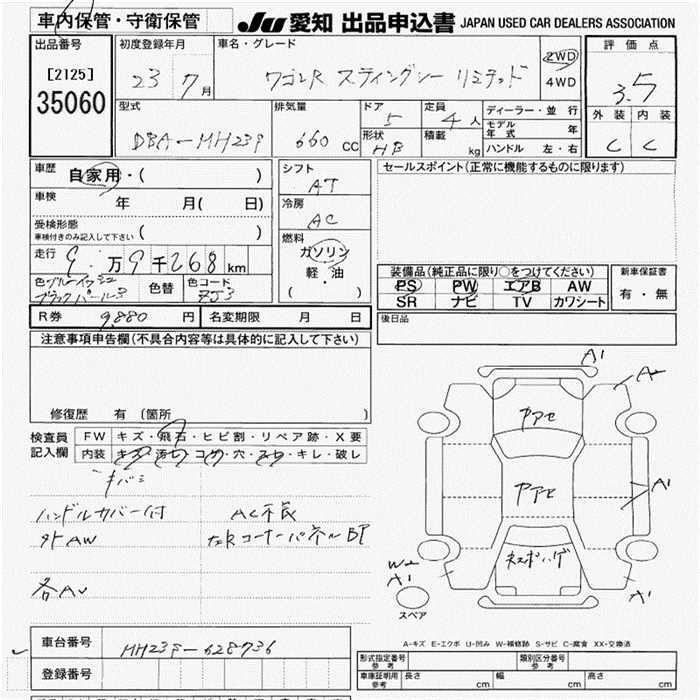 車内保管・守衛保管
JU 愛知 出品申込書 JAPAN USED CAR DEALERS ASSOCIATION
出品番号 初度登録年月 車名・グレード 評価点
[2125] 23 7月 ワゴンR スティングレー リミテッド 2WD 3.5
35060 4WD 外装 内装
型式 排気量 ドア 定員 ディーラー・並行 C C
DBA-MH23S 660 CC 5 4人 モデル年式 年
形状 HB 積載 kg ハンドル 左・右
車歴 自家用・( ) シフト AT セールスポイント(正常に機能するものに限ります)
車検 年 月( 日) 冷房 AC
受検形態 ( )
車検付きのみ記入して下さい
燃料 ガソリン
軽・油
( )
走行 9万9千268km
色 ブルーイッシュ
ブラックパール3
色替 色コード ZJ3
装備品(純正品に限り○をつけてください) 新車保証書
PS PW エアB AW 有・無
SR ナビ TV カワシート
R券 9,880円 名変期限 月 日 後日品
注意事項申告欄(不具合内容等は具体的に記入して下さい)
修復歴 有(箇所 )
検査員記入欄 FW キズ・飛石・ヒビ割・リペア跡・X要
内装 キズ・汚れ・コゲ・穴・スレ・キレ・破レ
キバミ
ハンドルカバー付 AC不良
外AW 左R コーナーパネルBP
各AU
A1
A2
ヤアセ
ヤアセ
A1
W2
A1
A1
スペア
A-キズ E-エクボ U-凹み W-補修跡 S-サビ C-腐食 XX-交換済
車台番号 MH23S-628736
登録番号
形式指定番号 参考 類別区分番号 参考
車庫証明用 参考 長さ cm 幅 cm 高さ cm